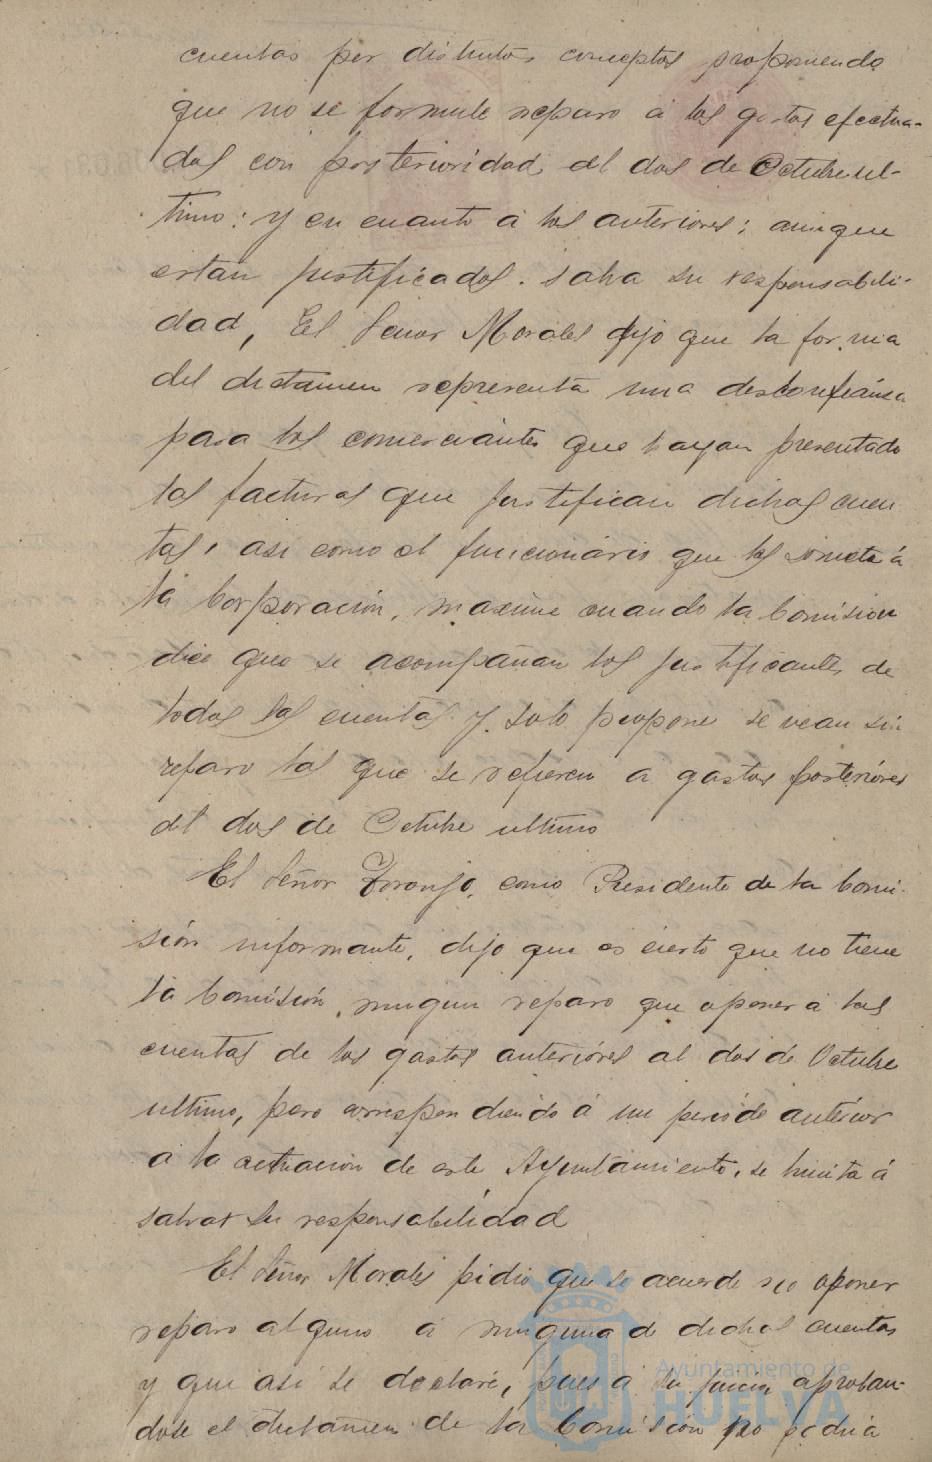 cuentas por distintos conceptos proponiendo
que no se formule reparo á los gastos efectua-
dos con posterioridad al dos de Octubre ul-
timo: y en cuanto á los anteriores; aunque
estan justificados. salva su responsabili-
dad, El Señor Morales dijo que la forma
del dictamen representa una desconfianza
para los comerciantes que hayan presentado
las facturas que justifican dichas cuen
tas, asi como al funcionário que las somete á
la Corporación, maxime cuando la Comision
dice que se acompañan los justificantes de
todas las cuentas y solo propone se vean sin
reparo las que se refieren a gastos posterióres
al dos de Octubre ultimo
El Señor Toronjo, como Presidente de la Comi-
sión informante, dijo que es cierto que no tiene
la Comisión, ningun reparo que oponer á las
cuentas de los gastos anterióres al dos de Octubre
ultimo, pero correspondiendo á un periódo antérior
a la actuación de este Ayuntamiento, se limita á
salvar su responsabilidad
El Señor Morales pidio que se acuerde no oponer
reparo alguno a ninguna de dichas cuentas
y que asi se declare, pues a su juicio aproban-
dose el dictamen de la Comisión no podria
Ayuntamiento de
HUELVA